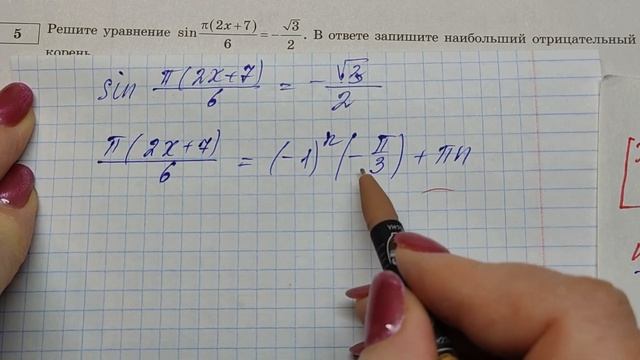 5
Решите уравнение sin π(2x+7)/6 = -√3/2. В ответе запишите наибольший отрицательный
корень
sin π(2x+7)/6 = -√3/2
π(2x+7)/6 = (-1)ⁿ(-π/3) + πn